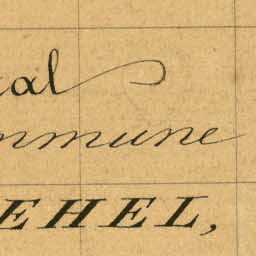 al
mmune
EHEL,